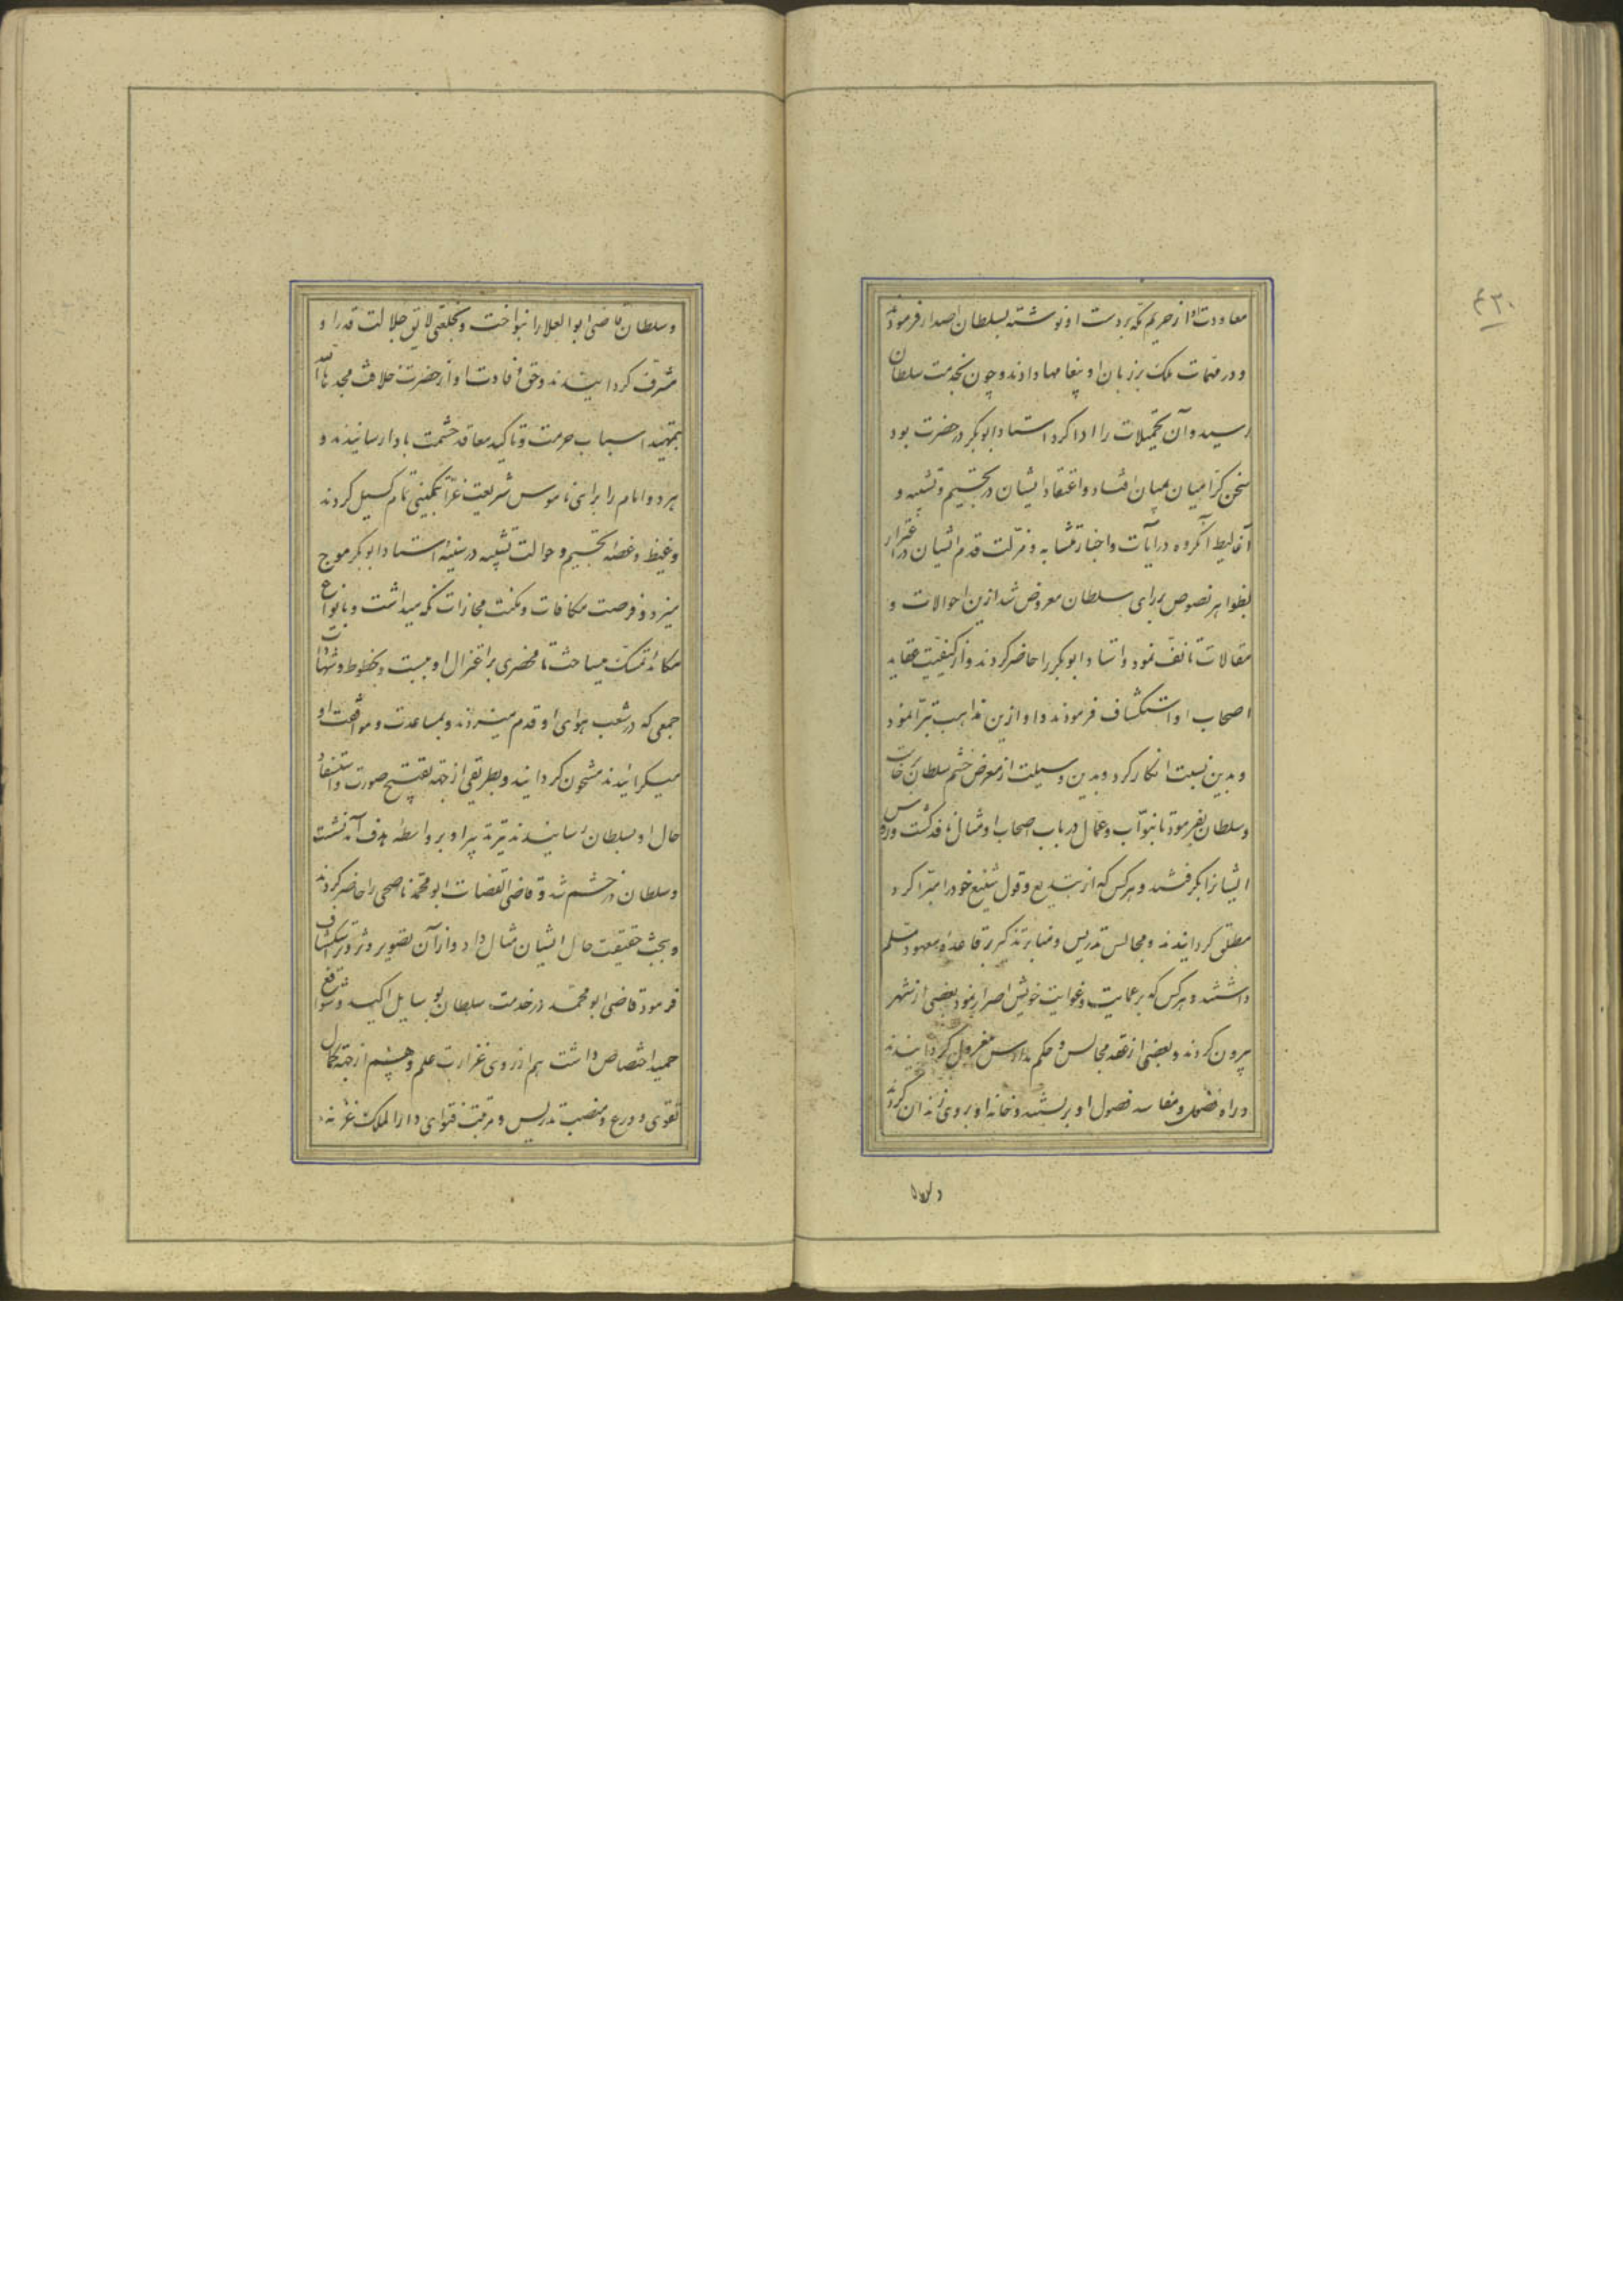 ۴۳۰
معاودت او از حریم مکه بر دست او نوشته بسلطان اصدار فرمودند
و در مهمات ملک بر زبان او پیغامها دادند و چون بخدمت سلطان
رسید و آن تحمیلات را ادا کرد استاد ابوبکر در حضرت بود
سخن کرامیان بمیان افتاد و اعتقاد ایشان در تجسیم و تشبیه و
اغالیط آن گروه در آیات و اخبار متشابه و مزلت قدم ایشان در اغترار
بظواهر نصوص بررای سلطان معروض شد ازین احوالات و
مقالات تانف نمود و استاد ابوبکر را حاضر کردند و از کیفیت عقاید
اصحاب او استکشاف فرمودند و او ازین مذاهب تبرا نمود
و بدین نسبت انکار کرد و بدین وسیلت از معرض خشم سلطان نجات
و سلطان بفرمود تا بنواب و عمال در باب اصحاب او مثال نافذ گشت و رؤس
ایشانرا بگرفتند و هر کس که از بتدیع و قول شنیع خود را مبرا کرد
مطلق کردانیدند و مجالس تدریس و منابر تذکیر بر قاعده معهود مسلم
داشتند و هر کس که بر عمایت و غوایت خویش اصرار نمود بعضی از شهر
بیرون کردند و بعضی از عقد مجالس و حکم مدارس معزول کردانیدند
و راه فضول و مفاسد فصول او بربستند و خانه او بروی زندان کردند
و سلطان
و سلطان قاضی ابو العلا را بنواخت و بخلعتی لایق جلالت قدر او
مشرف کردانیدند و حق وفادت او از حضرت خلافت مجدها الله
بتمهید اسباب حرمت و تاکید معاقد حشمت بادا رسانیدند و
هر دو امام را برای ناموس شریعت غرا بتمکینی تمام کسیل کردند
و غیظ و غصه تجسیم و حوالت تشبیه در سینه استاد ابوبکر موج
میزد و فرصت مکافات و مکنت مجازات نکه میداشت و بانواع
مکائد تمسک میساخت تا محضری بر اعتزال او ببست و بخطوط و شهادات
جمعی که در شعب هوای او قدم میزدند و بمساعدت و موافقت او
میکرائیدند مشحون کردانید و بطریقی از جهة تقبیح صورت و استفسار
حال او بسلطان رسانیدند تیر تدبیر او بر واسطه هدف آمد نشست
و سلطان در خشم شد و قاضی القضات ابو محمد ناصحی را حاضر کردند
و ببحث حقیقت حال ایشان مثال داد و از آن تصویر و تزویر استکشاف
فرمود قاضی ابو محمد در خدمت سلطان بوسایل اکید و شوافع
حمید اختصاص داشت هم از روی غزارت علم و هم از جهة کمال
تقوی و ورع و منصب تدریس و مرتبت فتوای دار الملک غزنه